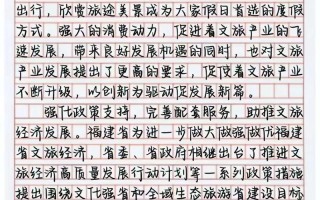 出行，欣赏旅途美景成为大家假日首选的度假
方式。强大的消费动力，促进着文旅产业的飞
速发展，带来良好发展机遇的同时，也对文旅
产业发展提出了更高的要求，促使着文旅产业
不断升级，以创新为驱动促发展新篇。
强化政策支持，完善配套服务，助推文旅
经济发展。福建省为进一步做大做强做优福建
省文旅经济，省委、省政府相继出台了推进文
旅经济高质量发展行动计划等一系列政策措施
提出围绕文化强省和全域生态旅游省建设目标